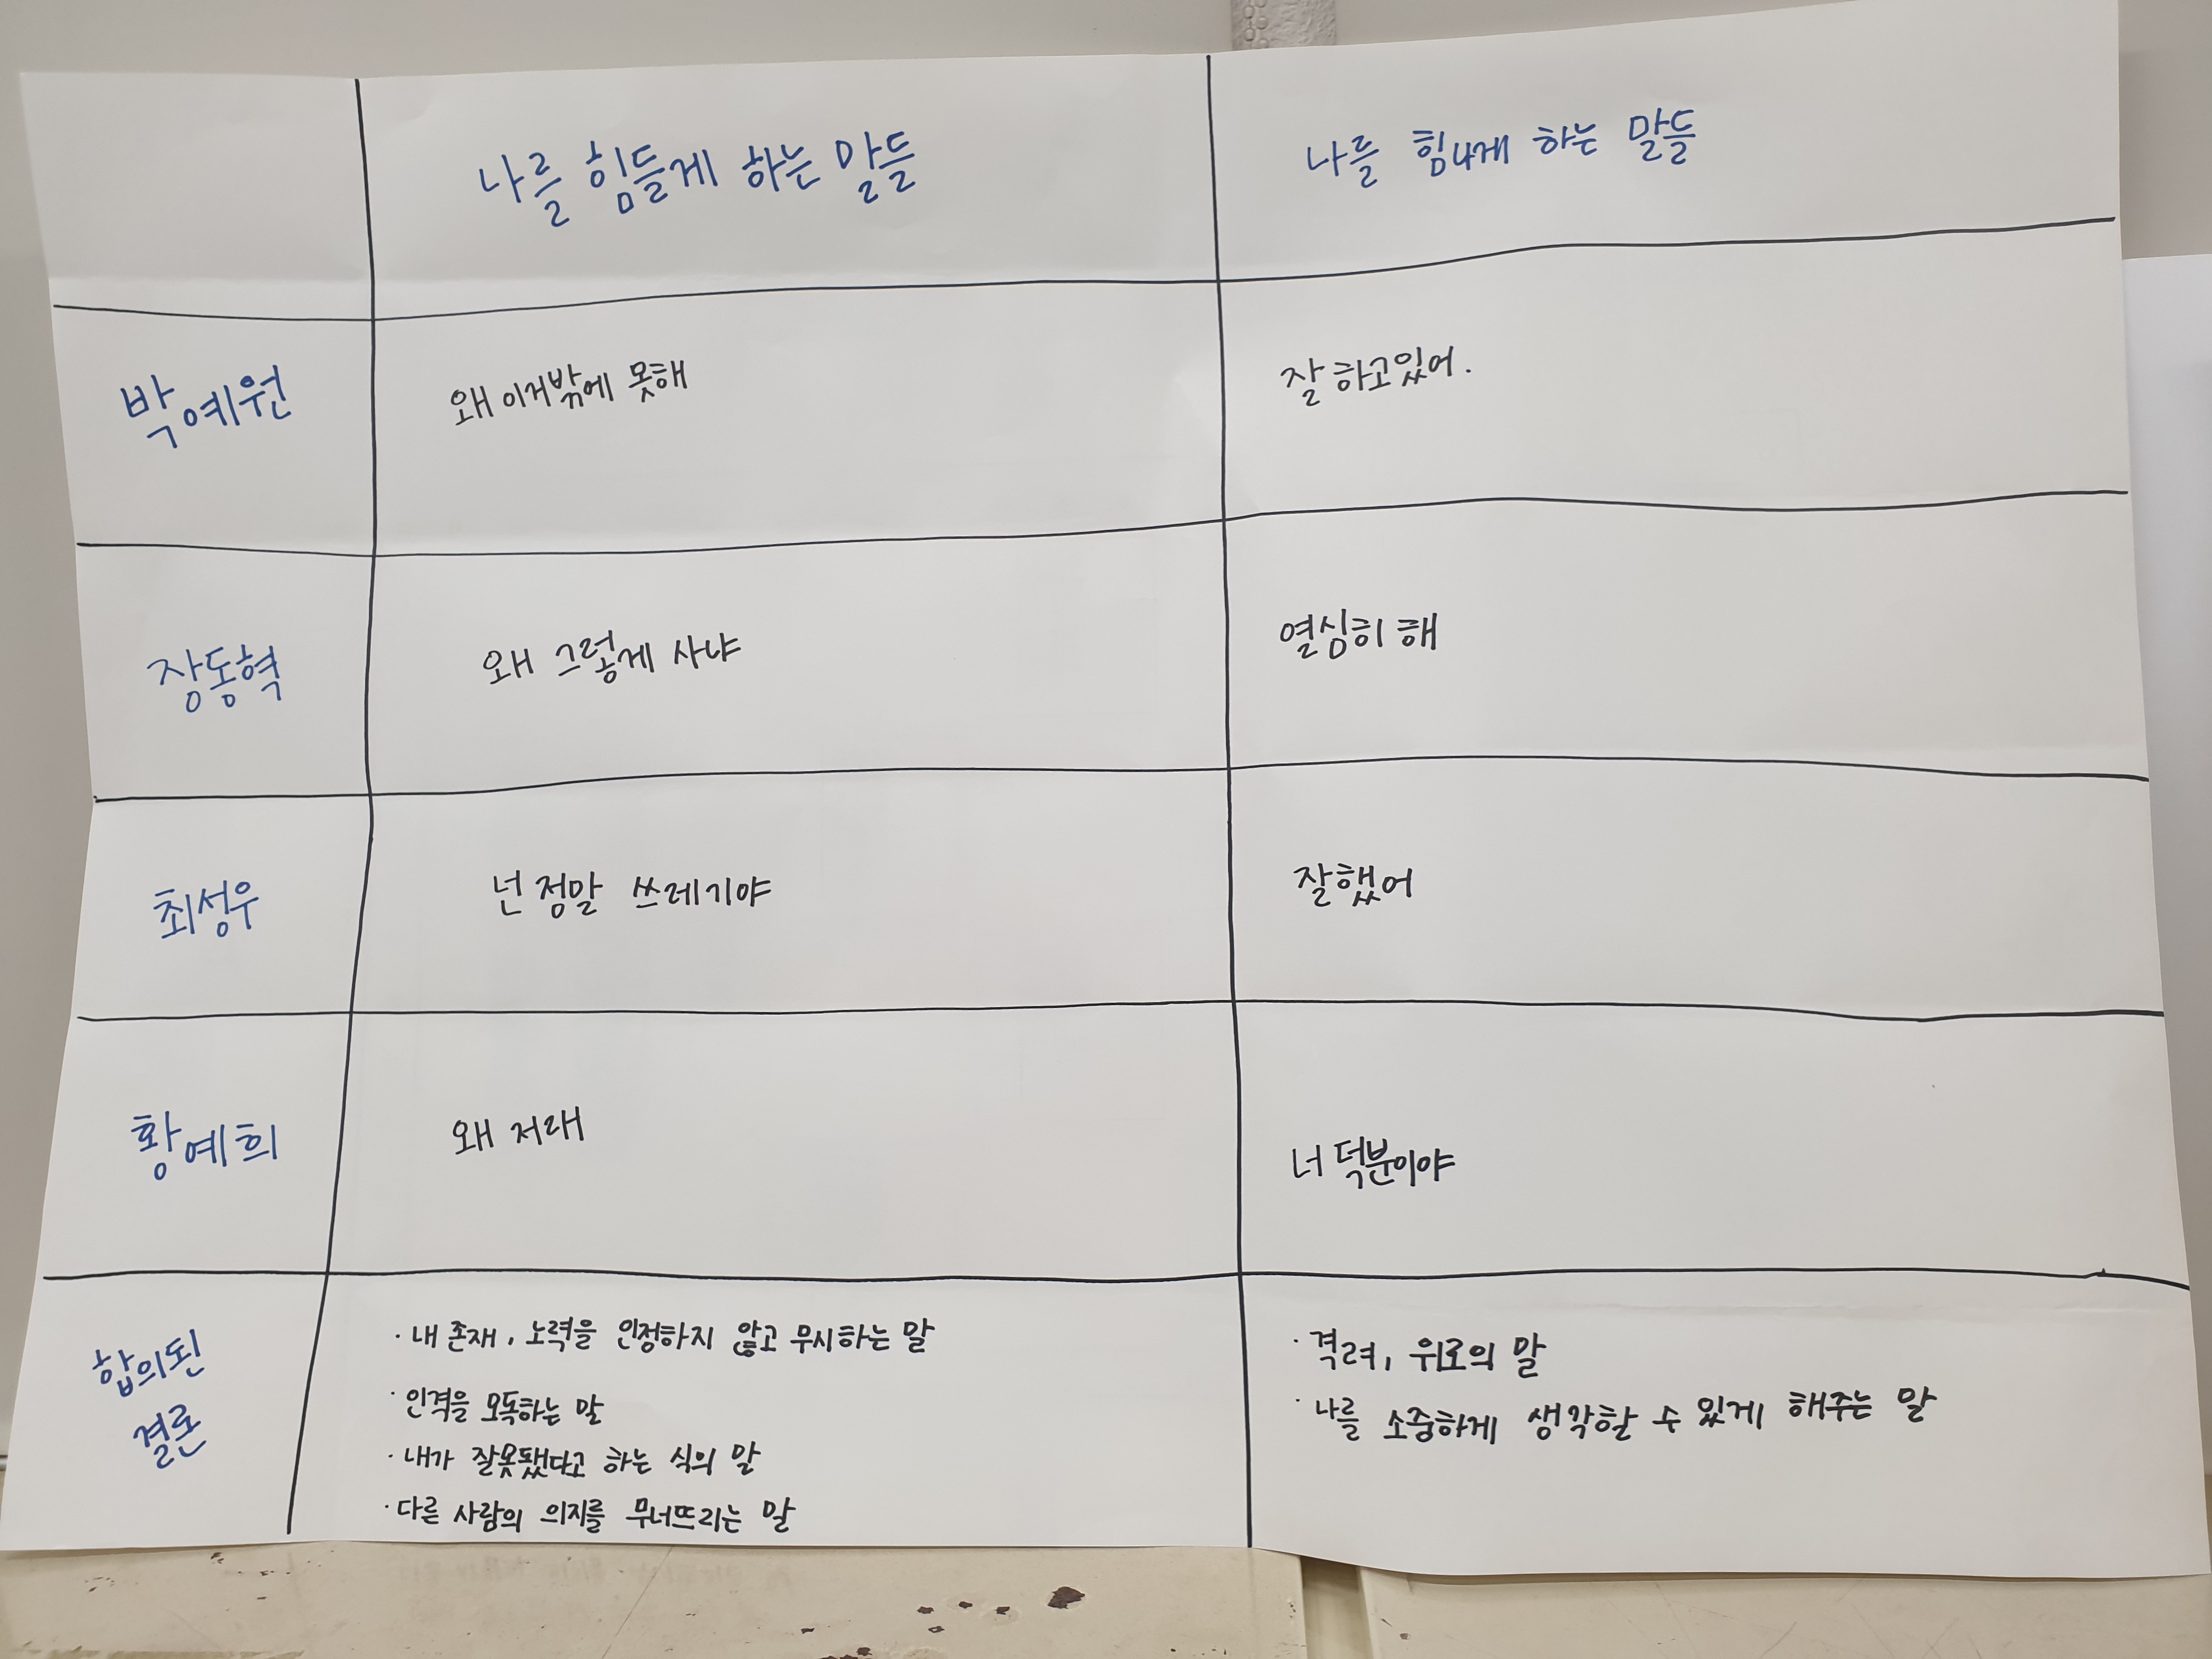 나를 힘들게 하는 말들
나를 힘나게 하는 말들
박예원
왜 이거밖에 못해
잘 하고있어.
장동혁
왜 그렇게 사냐
열심히 해
최성우
넌 정말 쓰레기야
잘했어
황예희
왜 저래
너 덕분이야
합의된
결론
· 내 존재, 노력을 인정하지 않고 무시하는 말
· 인격을 모독하는 말
· 내가 잘못됐다고 하는 식의 말
· 다른 사람의 의지를 무너뜨리는 말
· 격려, 위로의 말
· 나를 소중하게 생각할 수 있게 해주는 말